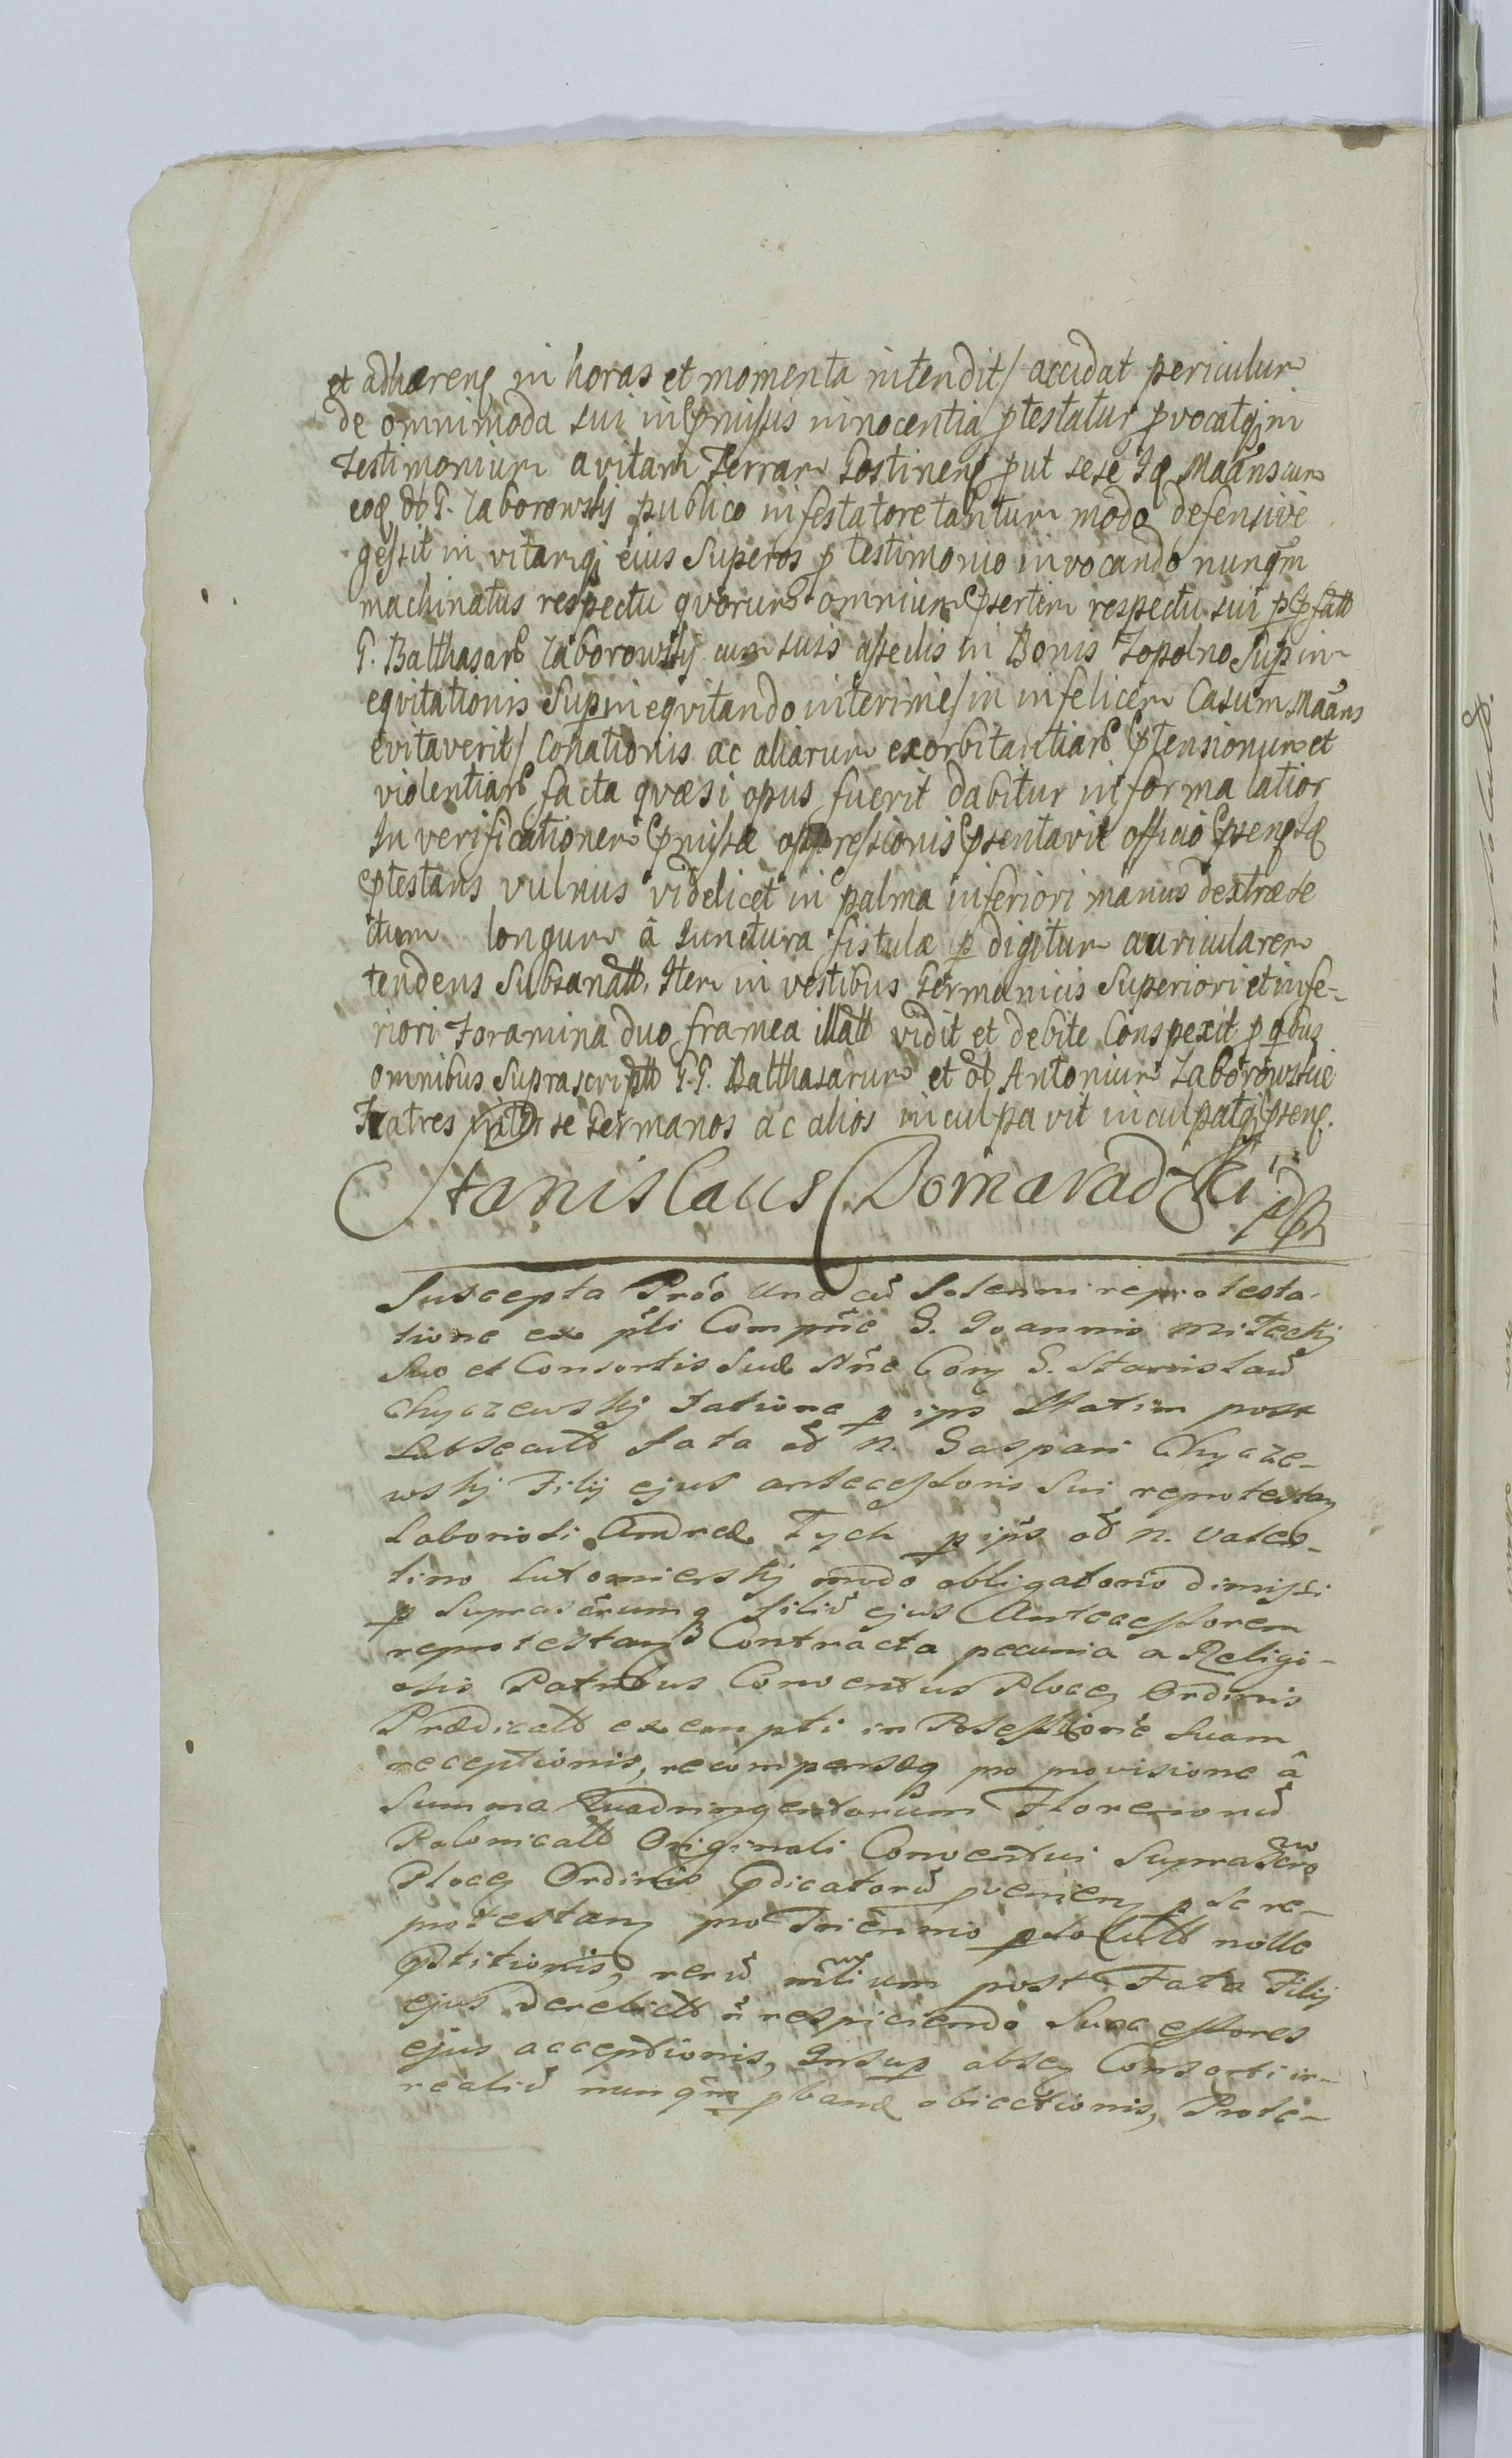 et adhæreng in horas et momenta intendit / accidat periculum
de omnimoda sui in pmissis innocentia ptestatur pvocatq in
testimonium avitam Terram Gostineng put sese Iq Maans cum
eoq G. Zaborowskij publico infestatore tantum modo defensive
gessit in vitamq ejus Superos p testimonio invocando nunqm
machinatus respectu qvorum omnium psertim respectu sui p pfatt
G. Balthasar Zaborowskij cum suis asseclis in Bonis Topolno Supin
eqvitationis Supineqvitando interime / in infelicem Casum Maans
evitaverit / Conationis ac aliarum exorbitantiar ptensionum et
violentiar facta qvæ si opus fuerit dabitur in forma latior
In verificationem pmissæ oppressionis psentavit officio pseng Iq
ptestans vulnus videlicet in palma inferiori manus dextræ se
ctum longum â Iunctura fistulæ p digitum auricularem
tendens Subsanatt. Item in vestibus Germanicis Superiori et infe-
riori Foramina duo framea illatt vidit et debite Conspexit p qbus
omnibus suprascriptt G.G. Balthasarum et Antonium Zaborowskie
Fratres inter se Germanos ac alios inculpavit inculpatq pseng.
Stanislaus Domaradzki
Suscepta Prôo una cū Solenni reprotesta-
tione ex pti Compne G. Joannis Mitecky
Suo et Consortis Suæ Nne Cong G. Stanislaū
Chyczewskij ratione p ips Statim post
Subsecutt fata N. Gaspari Chycze-
wskij Filij ejus antecessoris Sui reprotestang
Laboriosi Andreæ Tych p ips N. Valen-
tino Lutomierskij modo obligatorio dimissi
p Suprascrumq filiū ejus Antecessorem
reprotestang Contracta pecunia a Religi-
osis Patribus Conventus Ploceg Ordinis
Prædicatt exempti in Possessione Suam
receptionis, recompensæq pro provisione â
Summa Quadringentorum Florenorū
Polonicatt Originali Conventui Suprascro
Ploceg Ordinis pdicatorū pvenieng p se re-
protestang pro Triennio psolutt nolle
ptitionis, rerū mlium post Fata Filij
ejus derelictt n respiciendo Successores
ejus acceptionis, Insup abseg Consorti ir-
realiū nunqm pbandæ obiectionis, Prote-